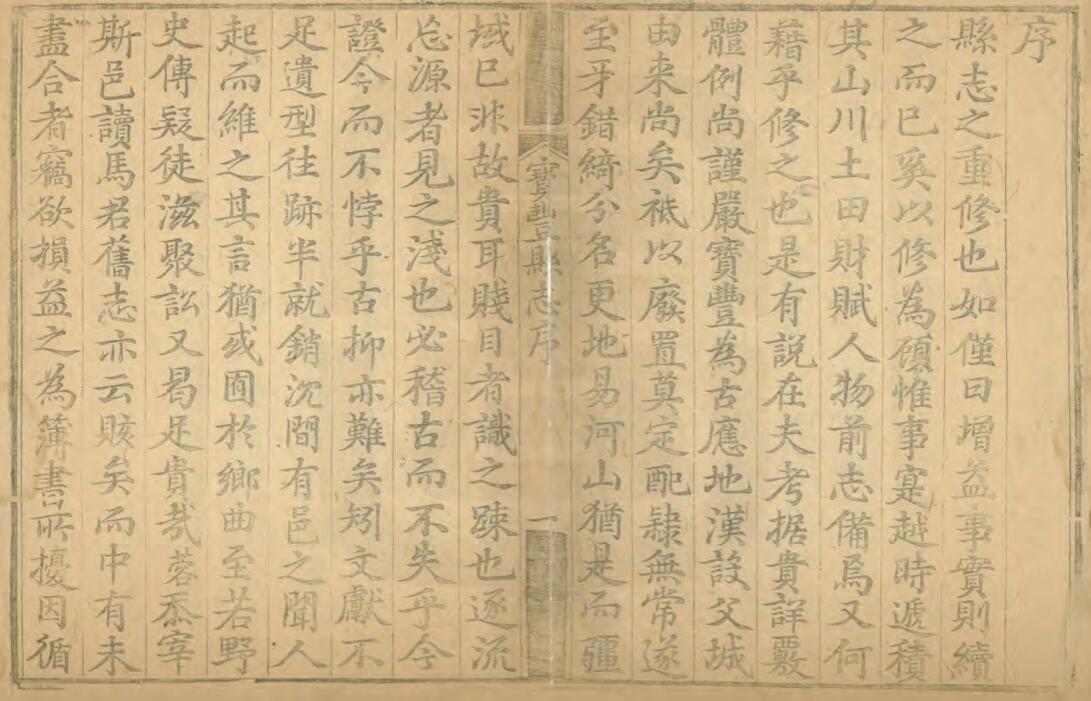 序
縣志之重修也如僅曰增益事實則續
之而已奚以修為顧惟事寔越時遞積
其山川土田財賦人物前志備焉又何
藉乎修之也是有説在夫考据貴詳覈
體例尚謹嚴寶豐為古應地漢設父城
由来尚矣祇以廢置莫定配隸無常遂
至牙錯綺分名更地易河山猶是而疆
寶豐縣志序
一
域已淆故貴耳賤目者識之踈也逐流
忘源者見之淺也必稽古而不失乎今
證今而不悖乎古抑亦難矣矧文獻不
足遺型往跡半就銷沈間有邑之聞人
起而維之其言猶或囿於鄉曲至若野
史傳疑徒滋聚訟又曷足貴哉蓉忝宰
斯邑讀馬君舊志亦云賅矣而中有未
盡合者竊欲損益之為簿書所擾因循